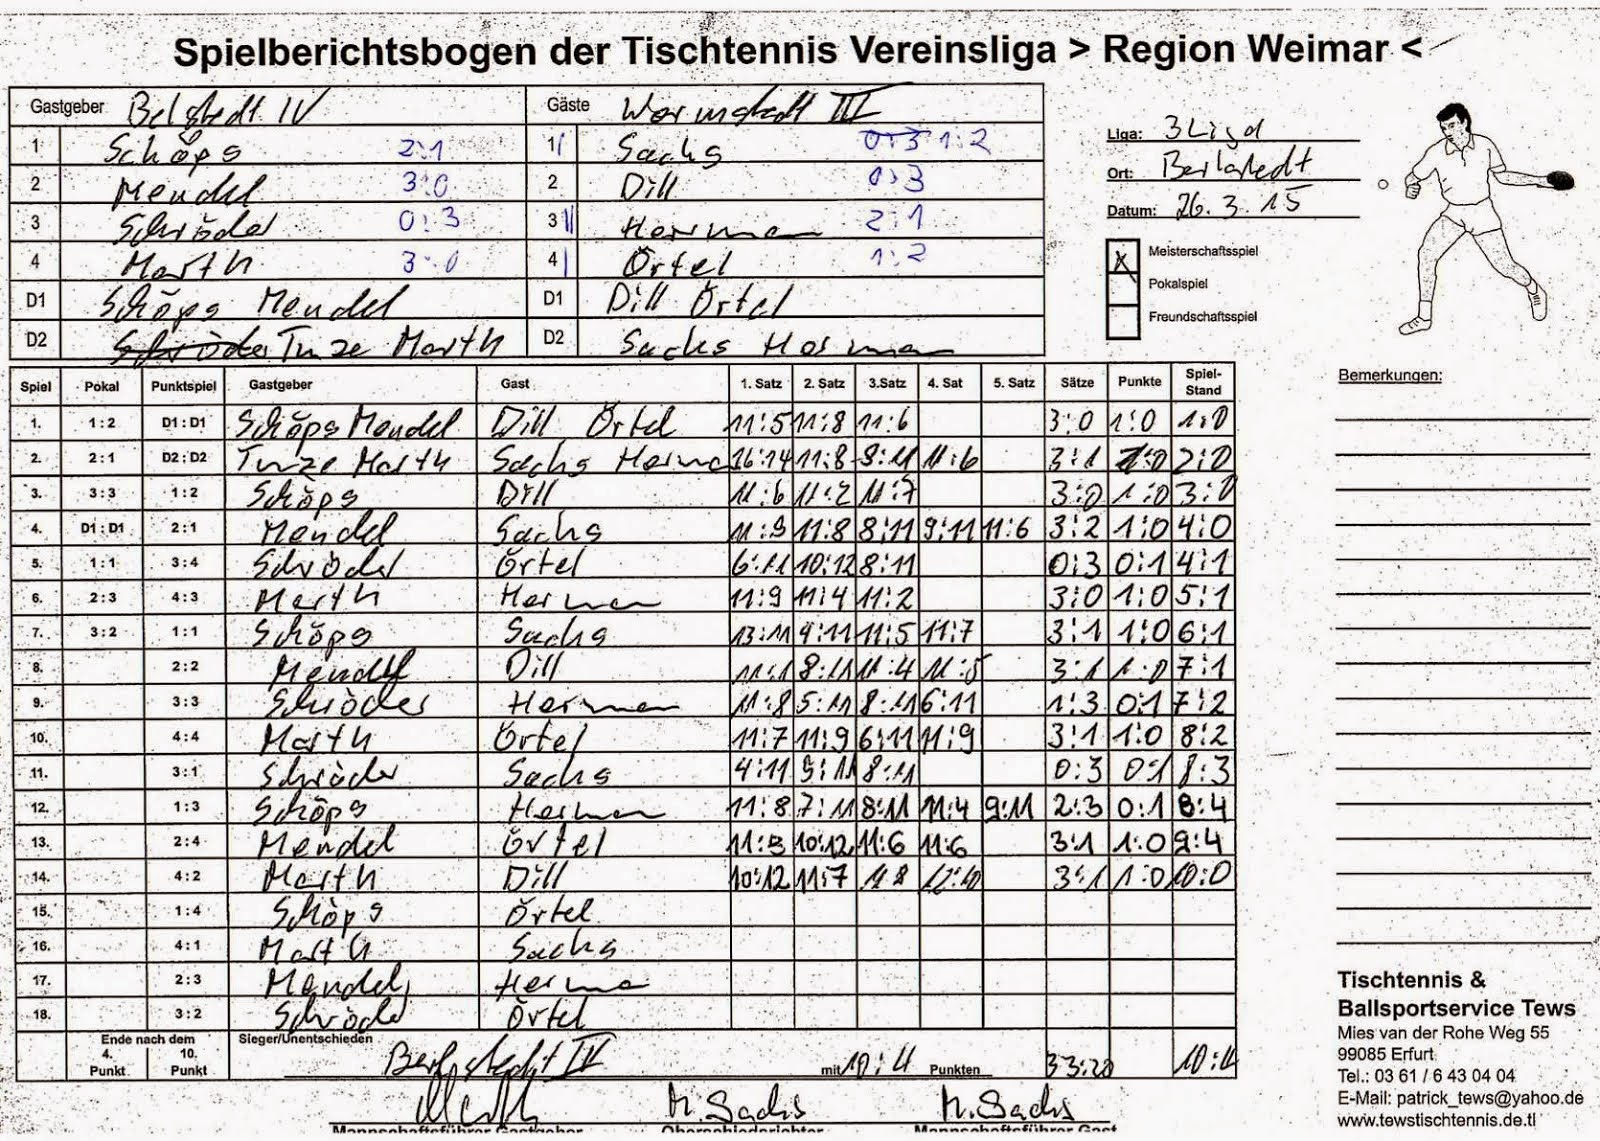 Spielberichtsbogen der Tischtennis Vereinsliga > Region Weimar <
Gastgeber Belstedt IV Gäste Wormstedt III
1 Schöps 2:1 1 Sachs 0:3 1:2
2 Mendel 3:0 2 Dill 0:3
3 Schröder 0:3 3 Herman 2:1
4 Marth 3:0 4 Örtel 1:2
D1 Schöps Mendel D1 Dill Örtel
D2 Schröder Tunze Marth D2 Sachs Herman
Liga: 3 Liga
Ort: Berlstedt
Datum: 26.3.15
X Meisterschaftsspiel
Pokalspiel
Freundschaftsspiel
Spiel Pokal Punktspiel Gastgeber Gast 1. Satz 2. Satz 3.Satz 4. Sat 5. Satz Sätze Punkte Spiel-Stand
1. 1:2 D1:D1 Schöps Mendel Dill Örtel 11:5 11:8 11:6 3:0 1:0 1:0
2. 2:1 D2:D2 Tunze Marth Sachs Herma 16:14 11:8 9:11 11:6 3:1 1:0 2:0
3. 3:3 1:2 Schöps Dill 11:6 11:2 11:7 3:0 1:0 3:0
4. D1:D1 2:1 Mendel Sachs 11:9 11:8 8:11 9:11 11:6 3:2 1:0 4:0
5. 1:1 3:4 Schröder Örtel 6:11 10:12 8:11 0:3 0:1 4:1
6. 2:3 4:3 Marth Herman 11:9 11:4 11:2 3:0 1:0 5:1
7. 3:2 1:1 Schöps Sachs 13:11 9:11 11:5 11:7 3:1 1:0 6:1
8. 2:2 Mendel Dill 11:1 8:11 11:4 11:5 3:1 1:0 7:1
9. 3:3 Schröder Herman 11:8 5:11 8:11 6:11 1:3 0:1 7:2
10. 4:4 Marth Örtel 11:7 11:9 6:11 11:9 3:1 1:0 8:2
11. 3:1 Schröder Sachs 4:11 9:11 8:11 0:3 0:1 8:3
12. 1:3 Schöps Herman 11:8 7:11 8:11 11:4 9:11 2:3 0:1 8:4
13. 2:4 Mendel Örtel 11:8 10:12 11:6 11:6 3:1 1:0 9:4
14. 4:2 Marth Dill 10:12 11:7 11:8 12:10 3:1 1:0 10:0
15. 1:4 Schöps Örtel
16. 4:1 Marth Sachs
17. 2:3 Mendel Herman
18. 3:2 Schröder Örtel
Ende nach dem
4. Punkt 10. Punkt
Sieger/Unentschieden Berlstedt IV mit 10:4 Punkten 33:20 10:4
M.Sachs M.Sachs
Mannschaftsführer Gastgeber Oberschiedsrichter Mannschaftsführer Gast
Bemerkungen:
Tischtennis &
Ballsportservice Tews
Mies van der Rohe Weg 55
99085 Erfurt
Tel.: 03 61 / 6 43 04 04
E-Mail: patrick_tews@yahoo.de
www.tewstischtennis.de.tl